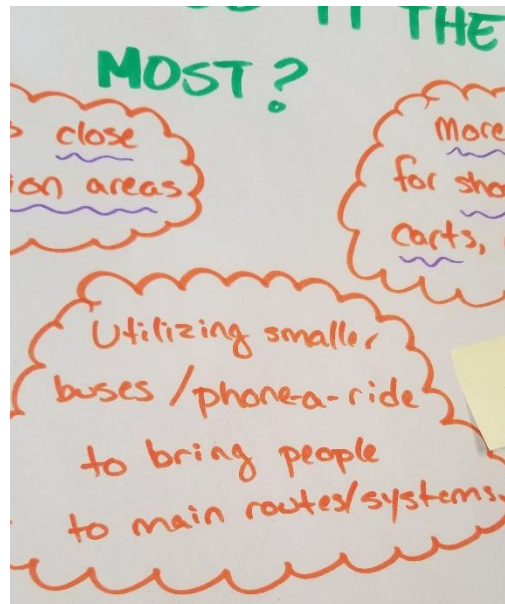 IT THE
MOST?
close
ion areas
More
for sho
carts,
Utilizing smaller
buses/phone-a-ride
to bring people
to main routes/systems.